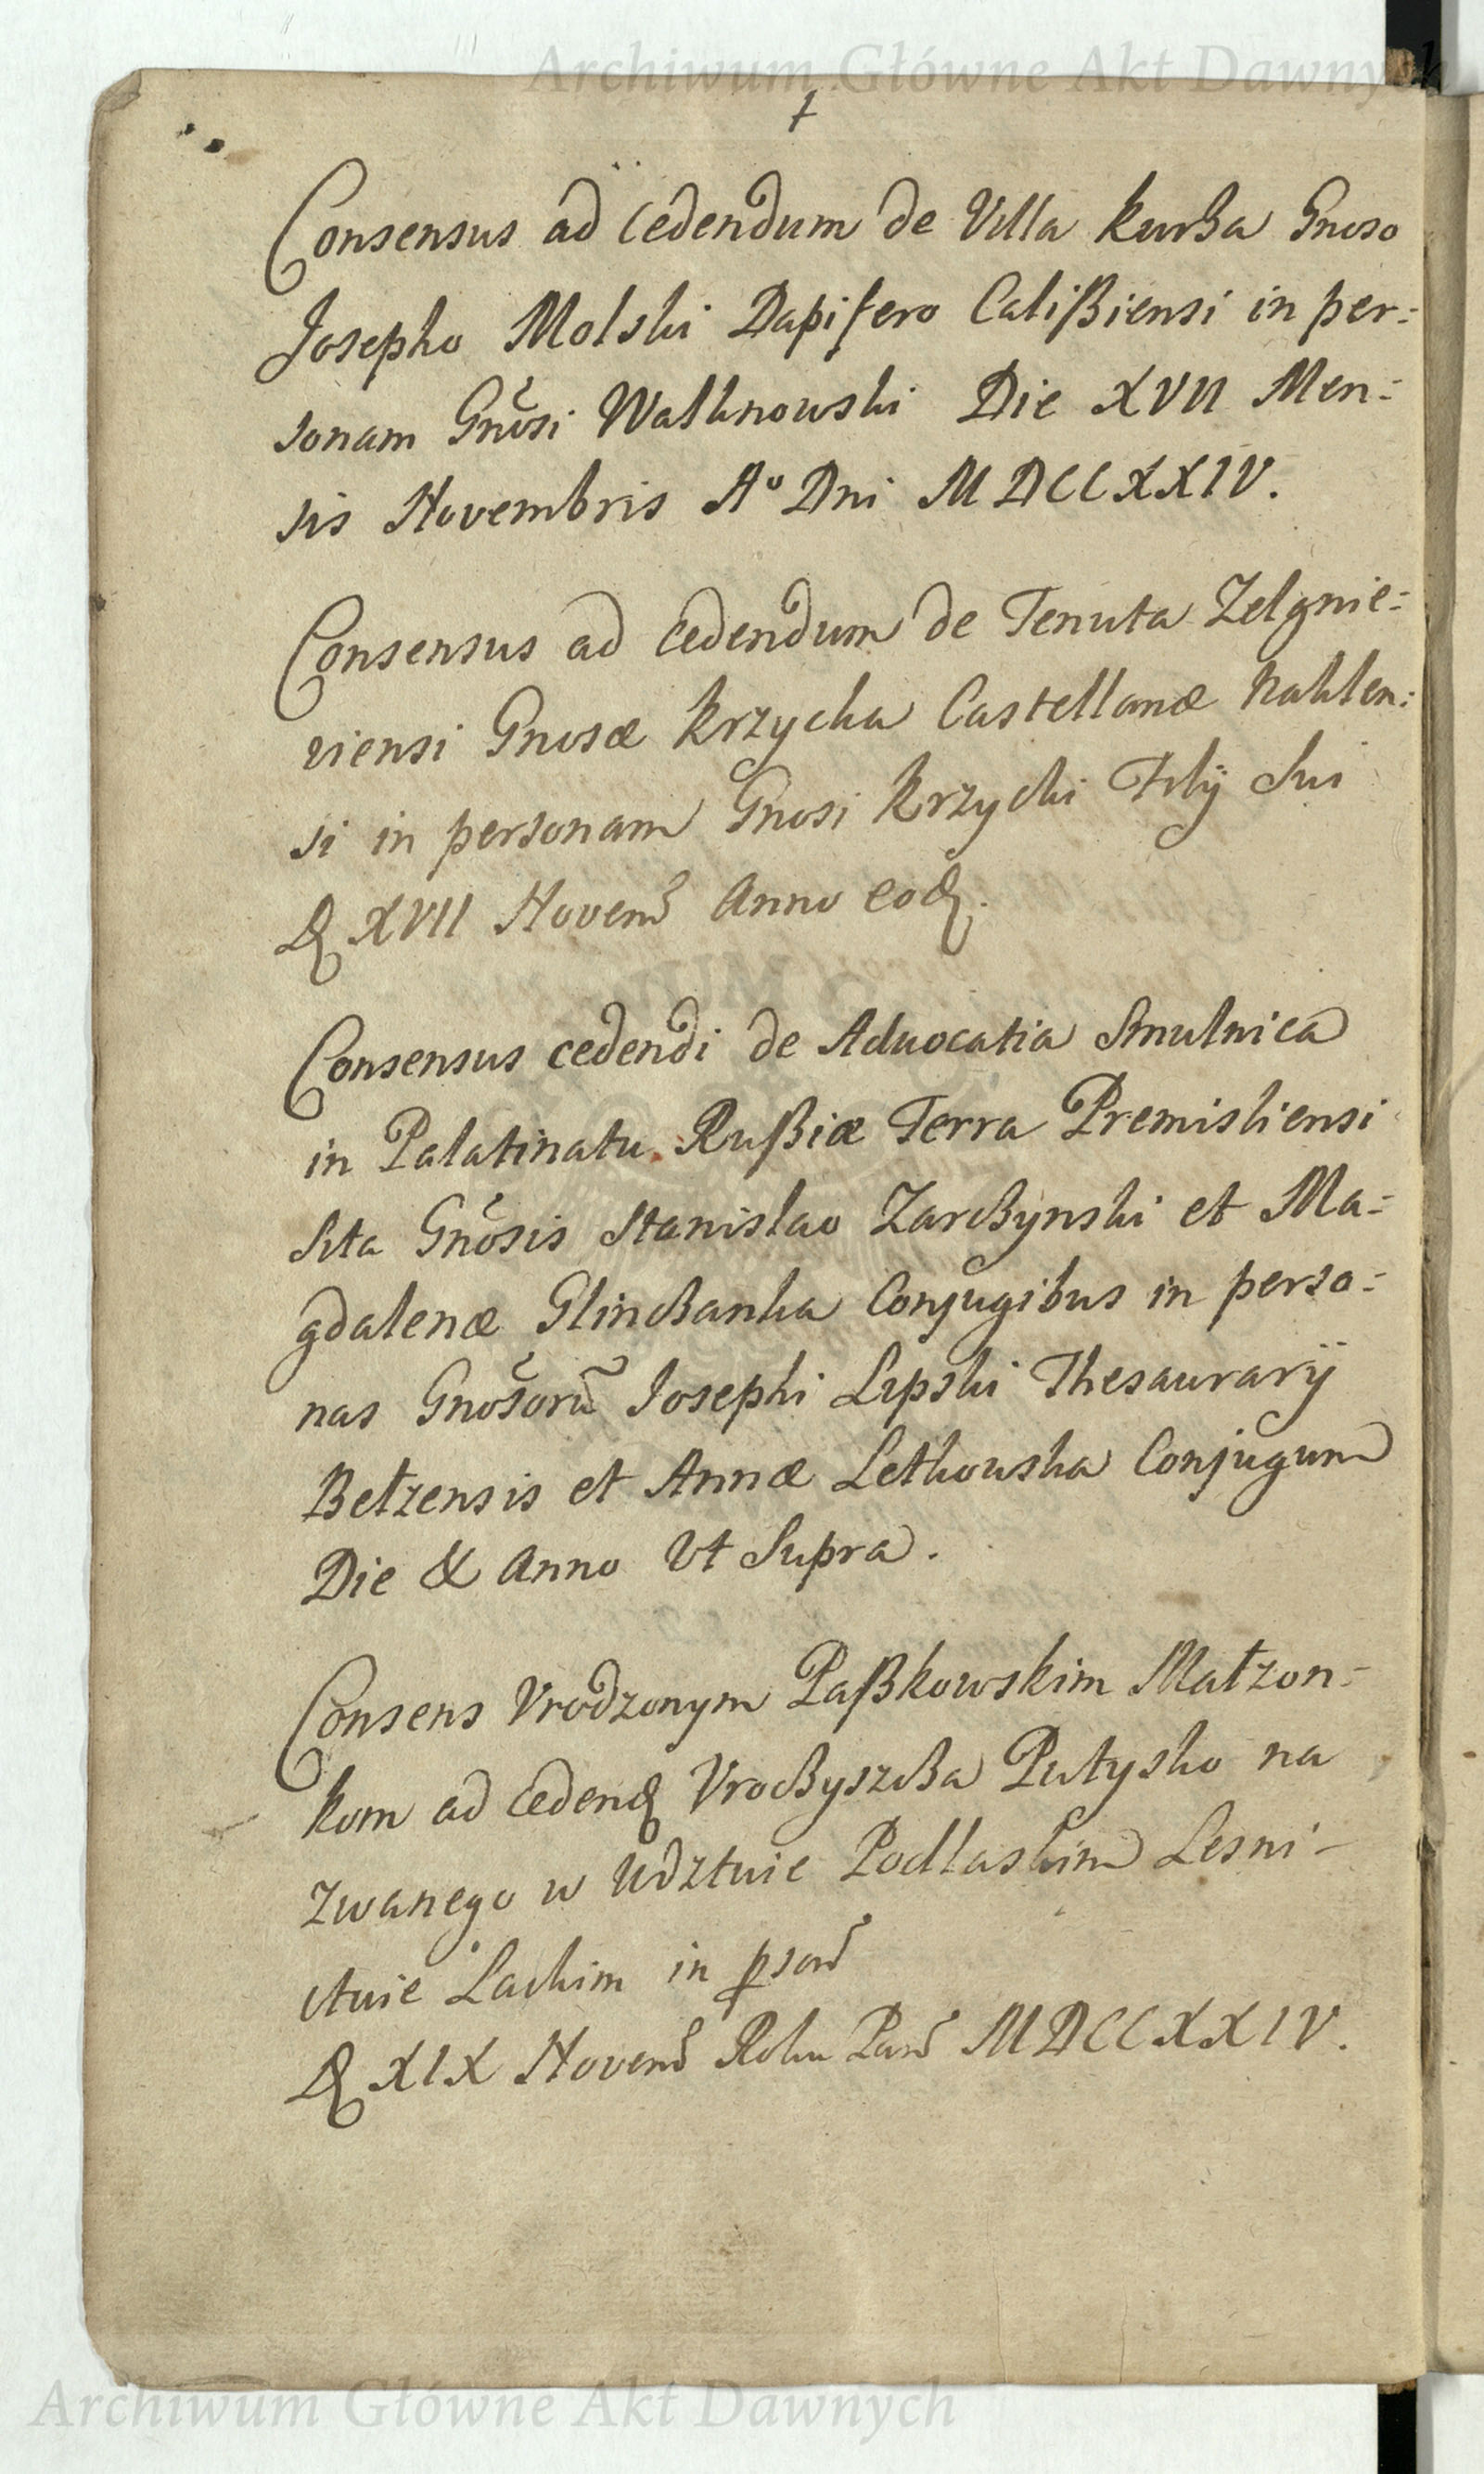 Archiwum Główne Akt Dawnych
Consensus ad Cedendum de Villa Kurßa Gnoso
Josepho Molski Dapifero Calißiensi in per=
sonam Gnosi Walknowski Die XVII Men=
sis Novembris Aº Dni MDCCXXIV.
Consensus ad Cedendum de Tenuta Zelgnie=
viensi Gnosæ Krzycka Castellanæ Naklen=
si in personam Gnosi Krzycki Filij Sui
XVII Novem Anno eod.
Consensus cedendi de Aduocatia Smulnica
in Palatinatu Rußiæ Terra Premisliensi
Sita Gnosis Stanislao Zarcßynski et Ma=
gdalenæ Glincßanka Conjugibus in perso=
nas Gnosorũ Josephi Lipski Thesaurarij
Bełzensis et Annæ Letkowska Conjugum
Die & Anno Vt Supra.
Consens Vrodzonym Paßkowskim Małzon=
kom ad Cedend Vrocßyszcßa Putysko na
zwanego w Wdztwie Podlaskim Lesni=
ctwie Lackim in pson
XIX Novem Roku Pan MDCCXXIV.
Archiwum Główne Akt Dawnych